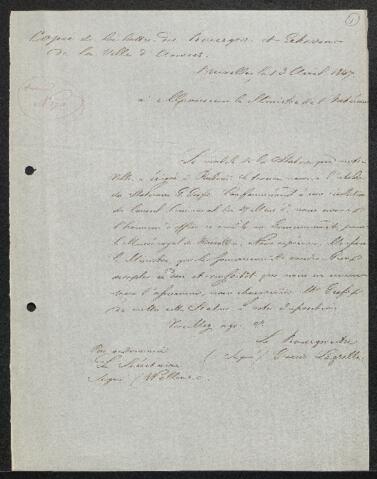 1
Copie de la lettre des Bourgmestre et Echevins
de la Ville d'Anvers.
Bruxelles le 13 Avril 1847
à Monsieur le Ministre de l'Intérieur
Le modèle de la Statue que notre
Ville a érigée à Rubens se trouve dans l'atelier
du Statuaire G. Geefs. Conformément à une résolution
du Conseil Communal du 27 Mars dr. nous avons
l'honneur d'offrir ce modèle au Gouvernement pour
le Musée royal de Bruxelles. Nous espérons, Monsieur
le Ministre, que le Gouvernement voudra bien
accepter ce don et aussitôt que nous en aurons
l'assurance, nous chargerons Mr Geefs
de mettre la Statue à votre disposition.
Veuillez agr. &c.
Le Bourgmestre
(signé) Gérard Legrelle
Par ordonnance
Le Secrétaire
Signé